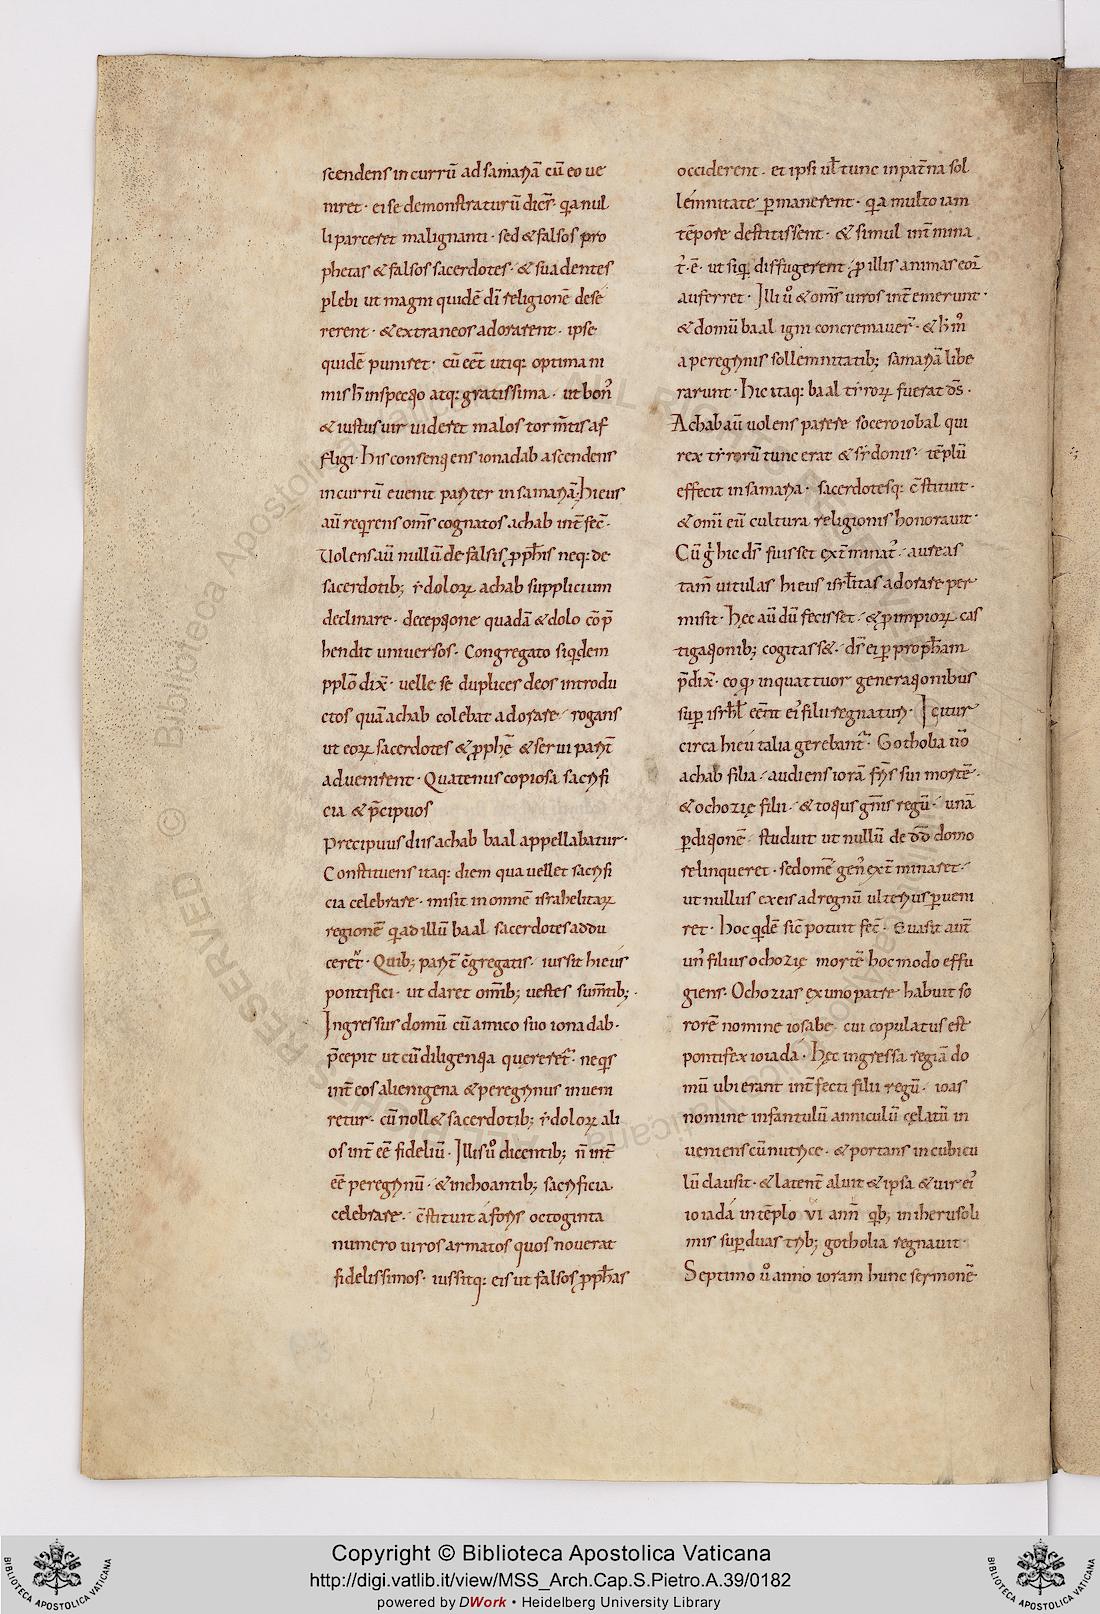 scendens in currū ad samariā cū eo ue
niret · ei se demonstraturū dicēs · q̇a nul
li parceret malignanti · sed & falsos pro
phetas & falsos sacerdotes · & suadentes
plebi ut magni quidē dī religionē dese
rerent · & extraneos adorarent · ipse
quidē puniret · cū eēt utiq: optima ni
mis h̄ inspectio atq: gratissima · ut bon᷒
& iustus uir uideret malos torm̄tis af
fligi · his consentiens ionadab ascendens
in currū euenit pariter in samariā · hieus
aū req̇rens om̄s cognatos achab int̄fec̄ ·
Uolens aū nullū de falsis ꝓph̄is neq: de
sacerdotib; ẏdoloꝝ achab supplicium
declinare · deceptione quadā & dolo cōp̄
hendit uniuersos · Congregato siq̇dem
pplō dix̄ · uelle se duplices deos introdu
ctos quā achab colebat adorare · rogans
ut eoꝝ sacerdotes & ꝓphē & serui parit̄
aduenirent · Quatenus copiosa sacrifi
cia & p̄cipuos
Precipuus diis achab baal appellabatur ·
Constituens itaq: diem qua uellet sacrifi
cia celebrare · misit in omnē israhelitaꝝ
regionē q̇ ad illū baal sacerdotes addu
cerēt · Quib; parit̄ c̄gregatis · iussit hieus
pontifici · ut daret om̄ib; uestes sum̄tib; ·
Ingressus domū cū amico suo ionadab ·
p̄cepit ut cū diligentia quęrereт̄ · ne q̇s
int̄ eos alienigena & peregrinus inueni
retur · cū noll& sacerdotib; ẏdoloꝝ ali
os int̄ eē fideliū · Illis ů dicentib; n̄ int̄
eē peregrinū · & inchoantib; sacrificia
celebrare · c̄stituit aforis octoginta
numero uiros armatos quos nouerat
fidelissimos · iussitq: eis ut falsos ꝓph̄as
occiderent · et ipsi ul̄ tunc in pat̄na sol
lémnitate ꝑmanerent · q̇a multo iam
tēpore destitissent · & simul int̄mina
т̄ · ē · ut siq̇ diffugerent ꝓ illis animas eoꝝ
auferret · Illi ů & om̄s uiros int̄emerunt ·
& domū baal igni concremauer̄ · & h̄ m̊
a peregrinis sollemnitatib; samariā libe
rarunt · Hic itaq: baal tẏrioꝝ fuerat d̄s ·
Achab aū uolens parere socero iobal qui
rex tẏriorū tunc erat & sẏdonis · tēplū
effecit in samaria · sacerdotesq: c̄stituit ·
& omī eū cultura religionis honorauit ·
Cū g̊ hic d̄s fuisset ext̄minat᷒ · aureas
tam̄ uitulas hieus isrl̄itas adorare per
misit · Hęc aū dū fecisset · & ꝓ impioꝝ cas
tigationib; cogitass& · d̄s ei ꝑ proph̄am
p̄dix̄ · eo qꝫ in quattuor generationibus
suꝑ isrl̄ eēnt ei᷒ filii regnaturi · Igitur
circa hieu talia gerebant᷒ · Gotholia uº
achab filia · audiens iorā fr̄is sui mortē ·
& ochozię filii · & totius gn̄is regū · unā
ꝑditionē · studuit ut nullū de d̄d domo
relinqueret · sed omē gen᷒ ext̄minaret ·
ut nullus ex eis ad regnū ulterius ꝑueni
ret · hoc q̇dē sic̄ potuit fec̄ · Euasit aūt
un᷒ filius ochozię mortē hoc modo effu
giens · Ochozias ex uno patre habuit so
rorē nomine iosabe · cui copulatus est
pontifex ioiada · Hęc ingressa regiā do
mū ubi erant int̄fecti filii regū · ioas
nomine infantulū anniculū cęlatū in
ueniens cū nutrice · & portans in cubicu
lū clausit · & latent̄ aluit & ipsa & uir ei᷒
ioiadá in tēplo vi ann̄ qb; in iherusoli
mis suꝑ duas trib; gotholia regnauit ·
Septimo ů anno ioram hunc sermonē
Copyright © Biblioteca Apostolica Vaticana
http://digi.vatlib.it/view/MSS_Arch.Cap.S.Pietro.A.39/0182
powered by DWork • Heidelberg University Library